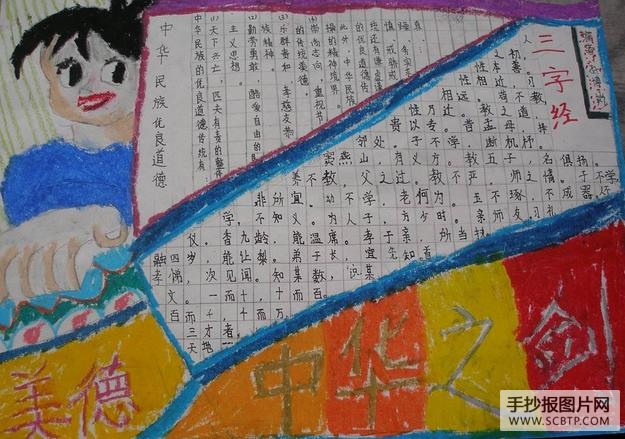 中华民族优良道德
中华民族的优良道德传统有:
(1)天下兴亡,匹夫有责的整体
主义思想
(2)勤劳勇敢 酷爱自由的
族精神。
(3)乐群贵和 孝慈友恭
的传统美德
(4)崇尚志向 重视节
操的精神境界。
此外,中华民族
的优良道德传
统还有谦虚谨
慎 戒骄戒
躁 务实求
真
三字经
人
之初,
性本善。
性相近,习
相远。苟不教
性乃迁。教之道
贵以专。昔孟母,择
邻处。子不学,断机杼。
窦燕山,有义方。教五子,名俱扬。
养不教,父之过。教不严,师之惰。子不学
非所宜。幼不学,老何为。玉不琢,不成器。
学,不知义。为人子,方少时。亲师友,习礼
仪。香九龄,能温席。孝于亲,所当执
融四岁,能让梨。弟于长,宜先知。首
孝悌,次见闻。知某数,识某
文。一而十,十而百。
百而千,千而万。
三才者,
天地
美德
中华之剑
手抄报图片网
WWW.SCBTP.COM